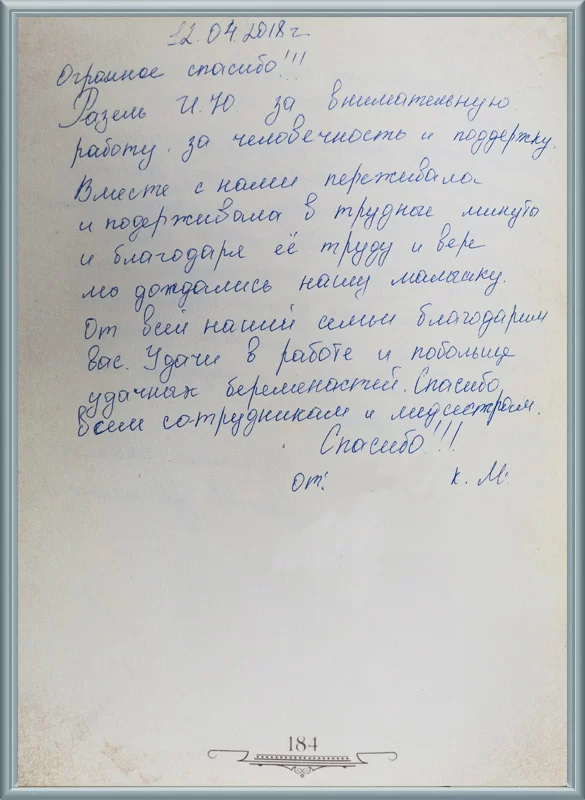 12.04.2018г.
Огромное спасибо!!!
Разель И.Ю за внимательную
работу. за человечность и поддержку.
Вместе с нами переживала
и подерживала в трудные минуты
и благодаря её труду и вере
мы дождались нашу малышку.
От всей нашей семьи благодарим
вас. Удачи в работе и побольше
удачных беременастей. Спасибо
всем сотрудникам и медсестрам.
Спасибо!!!
от: К. М.
184